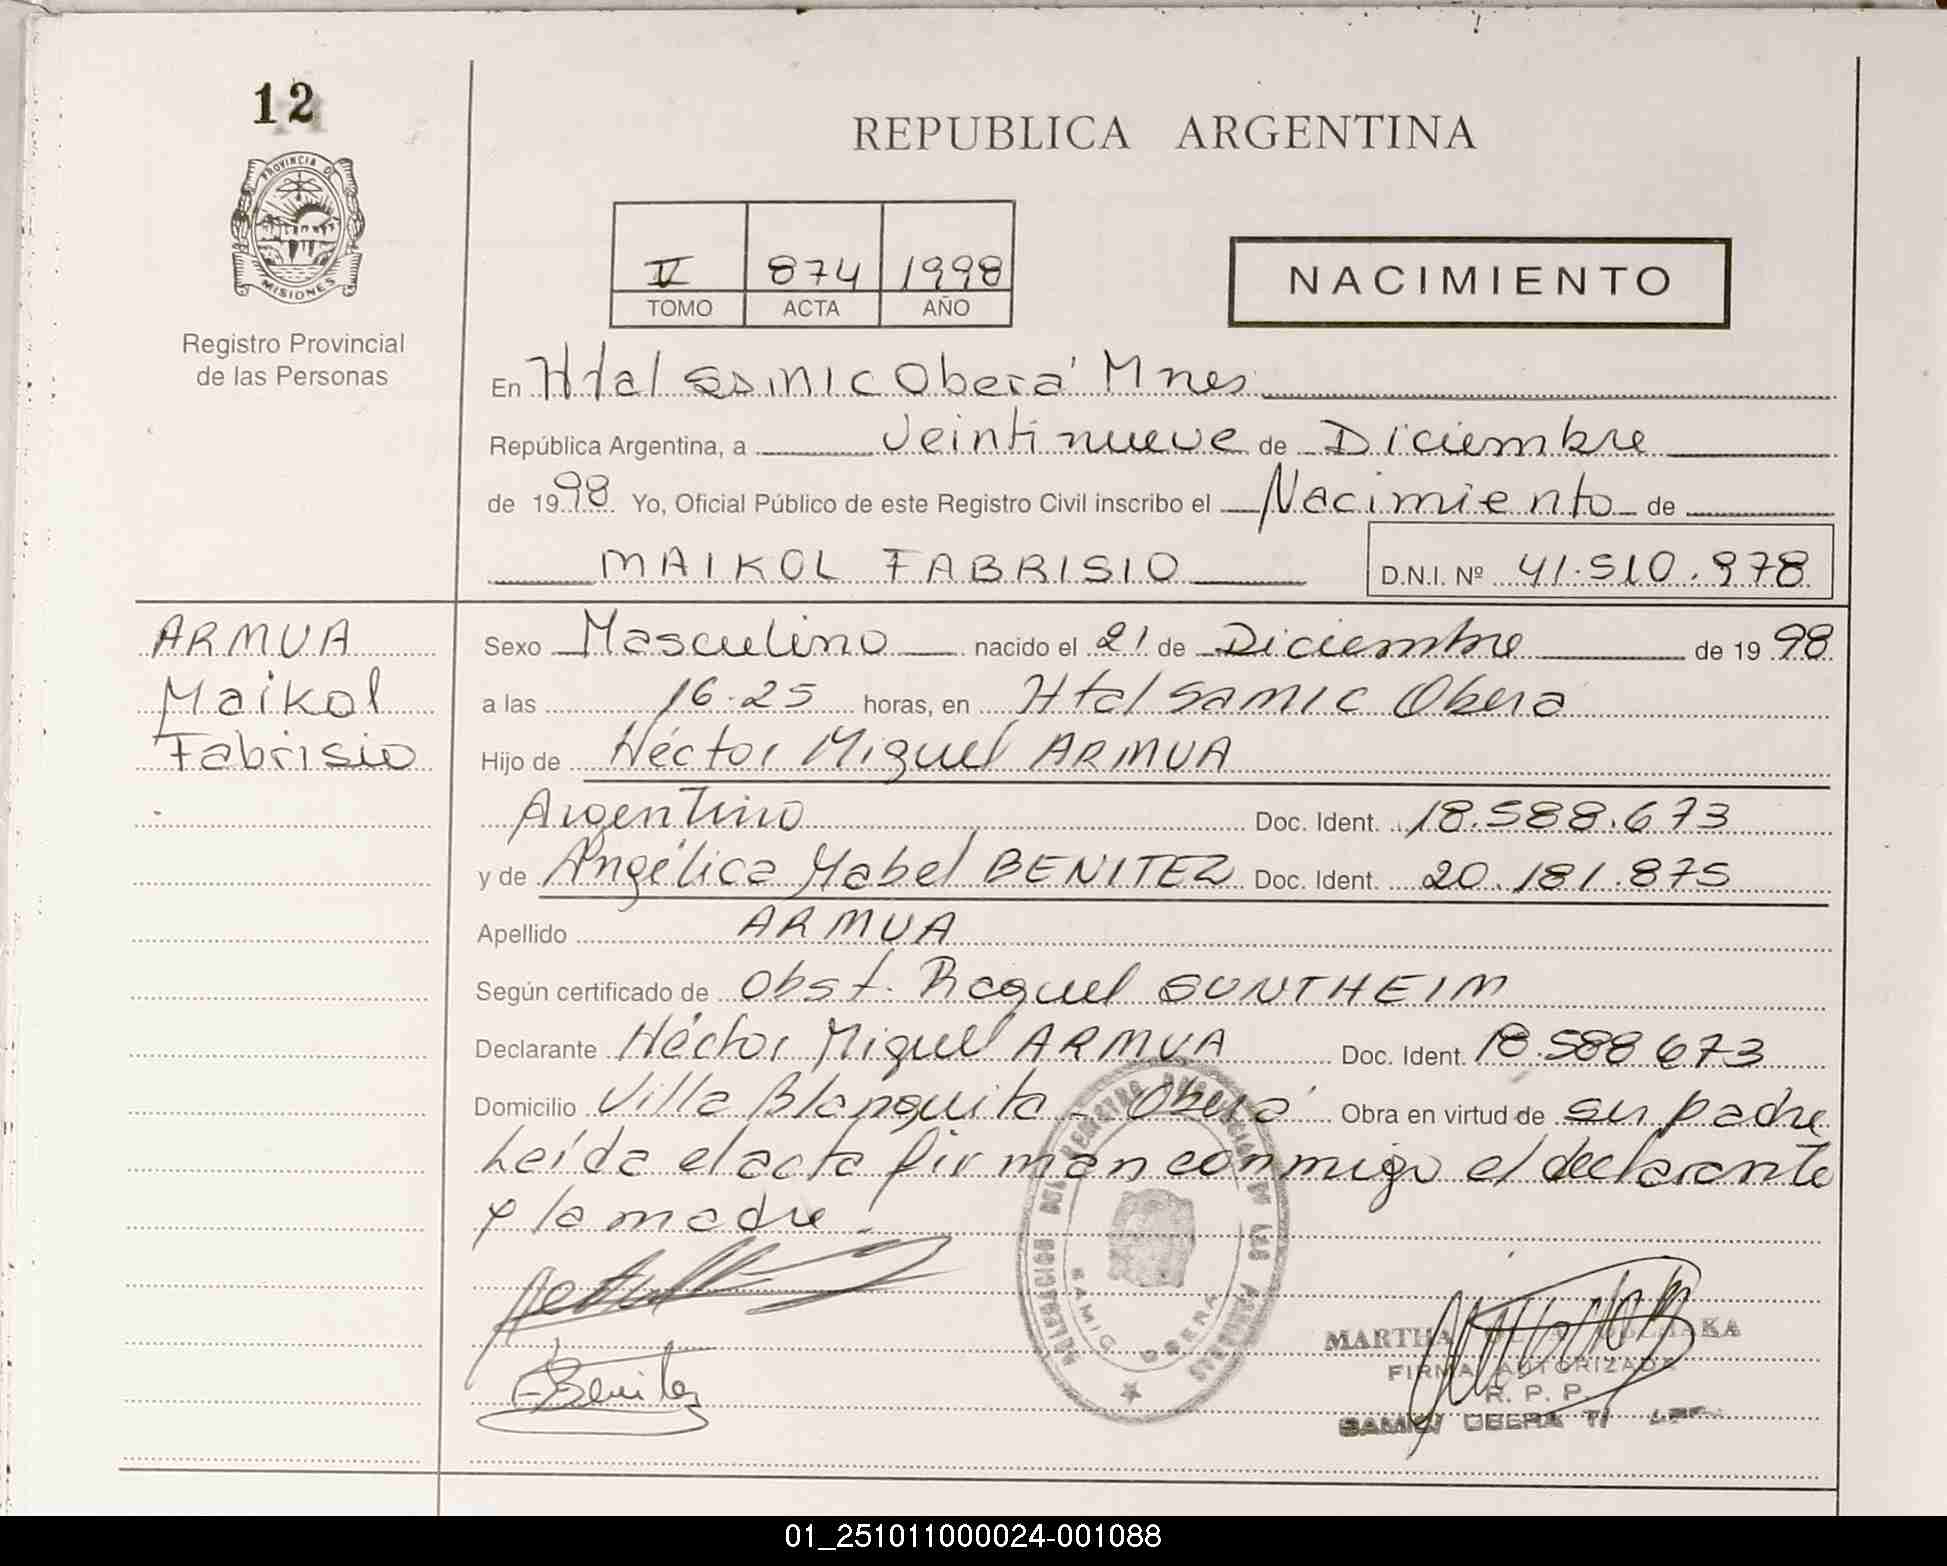 12
REPUBLICA ARGENTINA
PROVINCIA DE
MISIONES
Registro Provincial
de las Personas
V 874 1998
TOMO ACTA AÑO
NACIMIENTO
En Htal Samic Oberá Mnes
República Argentina, a Veintinueve de Diciembre
de 1998 Yo, Oficial Público de este Registro Civil inscribo el Nacimiento de
MAIKOL FABRISIO D.N.I. Nº 41.510.978
ARMUA
Maikol
Fabrisio
Sexo Masculino nacido el 21 de Diciembre de 1998
a las 16.25 horas, en Htal Samic Obera
Hijo de Héctor Miguel ARMUA
Argentino Doc. Ident. 18.588.673
y de Angélica Mabel BENITEZ Doc. Ident. 20.181.875
Apellido ARMUA
Según certificado de Obst. Raquel SUNTHEIM
Declarante Héctor Miguel ARMUA Doc. Ident. 18.588.673
Domicilio Villa Blanquita - Oberá Obra en virtud de su padre
Leída el acta firman conmigo el declarante
y la madre.
DELEGACION DEL REGISTRO PROVINCIAL DE LAS PERSONAS
SAMIC OBERA
Benitez
MARTHA
FIRMA AUTORIZADA
R. P. P.
SAMIC OBERA
01_251011000024-001088